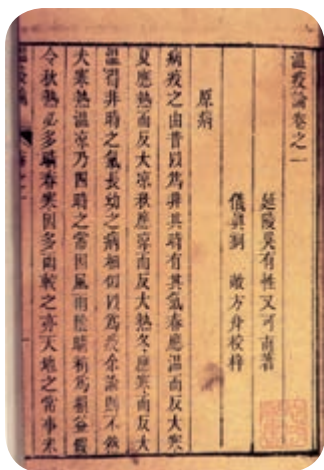 溫疫論卷之一
延陵吳有性又可甫著
儀真劉 敞方舟校梓
原病
病疫之由昔以為非其時有其氣春應溫而反大寒
夏應熱而反大涼秋應涼而反大熱冬應寒而反大
溫得非時之氣長幼之病相似以為疫余論則不然
夫寒熱溫涼乃四時之常因風雨陰晴稍為損益假
令秋熱必多晴春寒因多雨較之亦天地之常事未